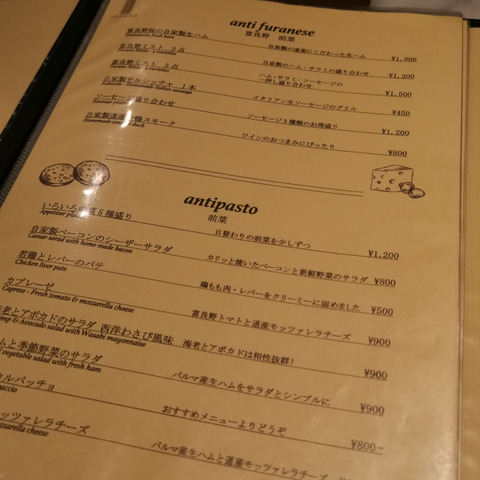 anti furanese
富良野 前菜
富良野豚の自家製生ハム 自家製の道産にこだわった生ハム ¥1,000
富良野ミスト 3点 自家製のハム・サラミの盛り合わせ ¥1,200
富良野ミスト 5点 ハム・サラミ・ソーセージの
押し盛り合わせ ¥1,500
自家製サルシッチャ 1本 イタリアン生ソーセージのグリル ¥450
ソーセージ盛り合わせ ソーセージ3種類のお得盛り ¥1,200
Sausage
自家製道産 鴨スモーク ワインのおつまみにぴったり ¥800
Homemade duck
antipasto
前菜
いろいろ 菜5種盛り 日替わりの前菜を少しずつ ¥1,200
Appetiser
自家製ベーコンのシーザーサラダ カリッと焼いたベーコンと新鮮野菜のサラダ ¥800
Caesar salad with home made bacon
若鶏とレバーのパテ 鶏もも肉・レバーをクリーミーに固めました ¥500
Chicken liver pate
カプレーゼ 富良野トマトと道産モッツァレラチーズ ¥900
Caprese - Fresh tomato & mozzarella cheese
老とアボカドのサラダ 西洋わさび風味 海老とアボカドは相性抜群! ¥900
& Avocado salad with Wasabi mayonnaise
ムと季節野菜のサラダ パルマ産生ハムをサラダとシンプルに ¥900
vegetable salad with fresh ham
ルパッチョ おすすめメニューよりどうぞ ¥800~
accio
ッツァレラチーズ パルマ産生ハムと道産モッツァレラチーズ
zzarella cheese